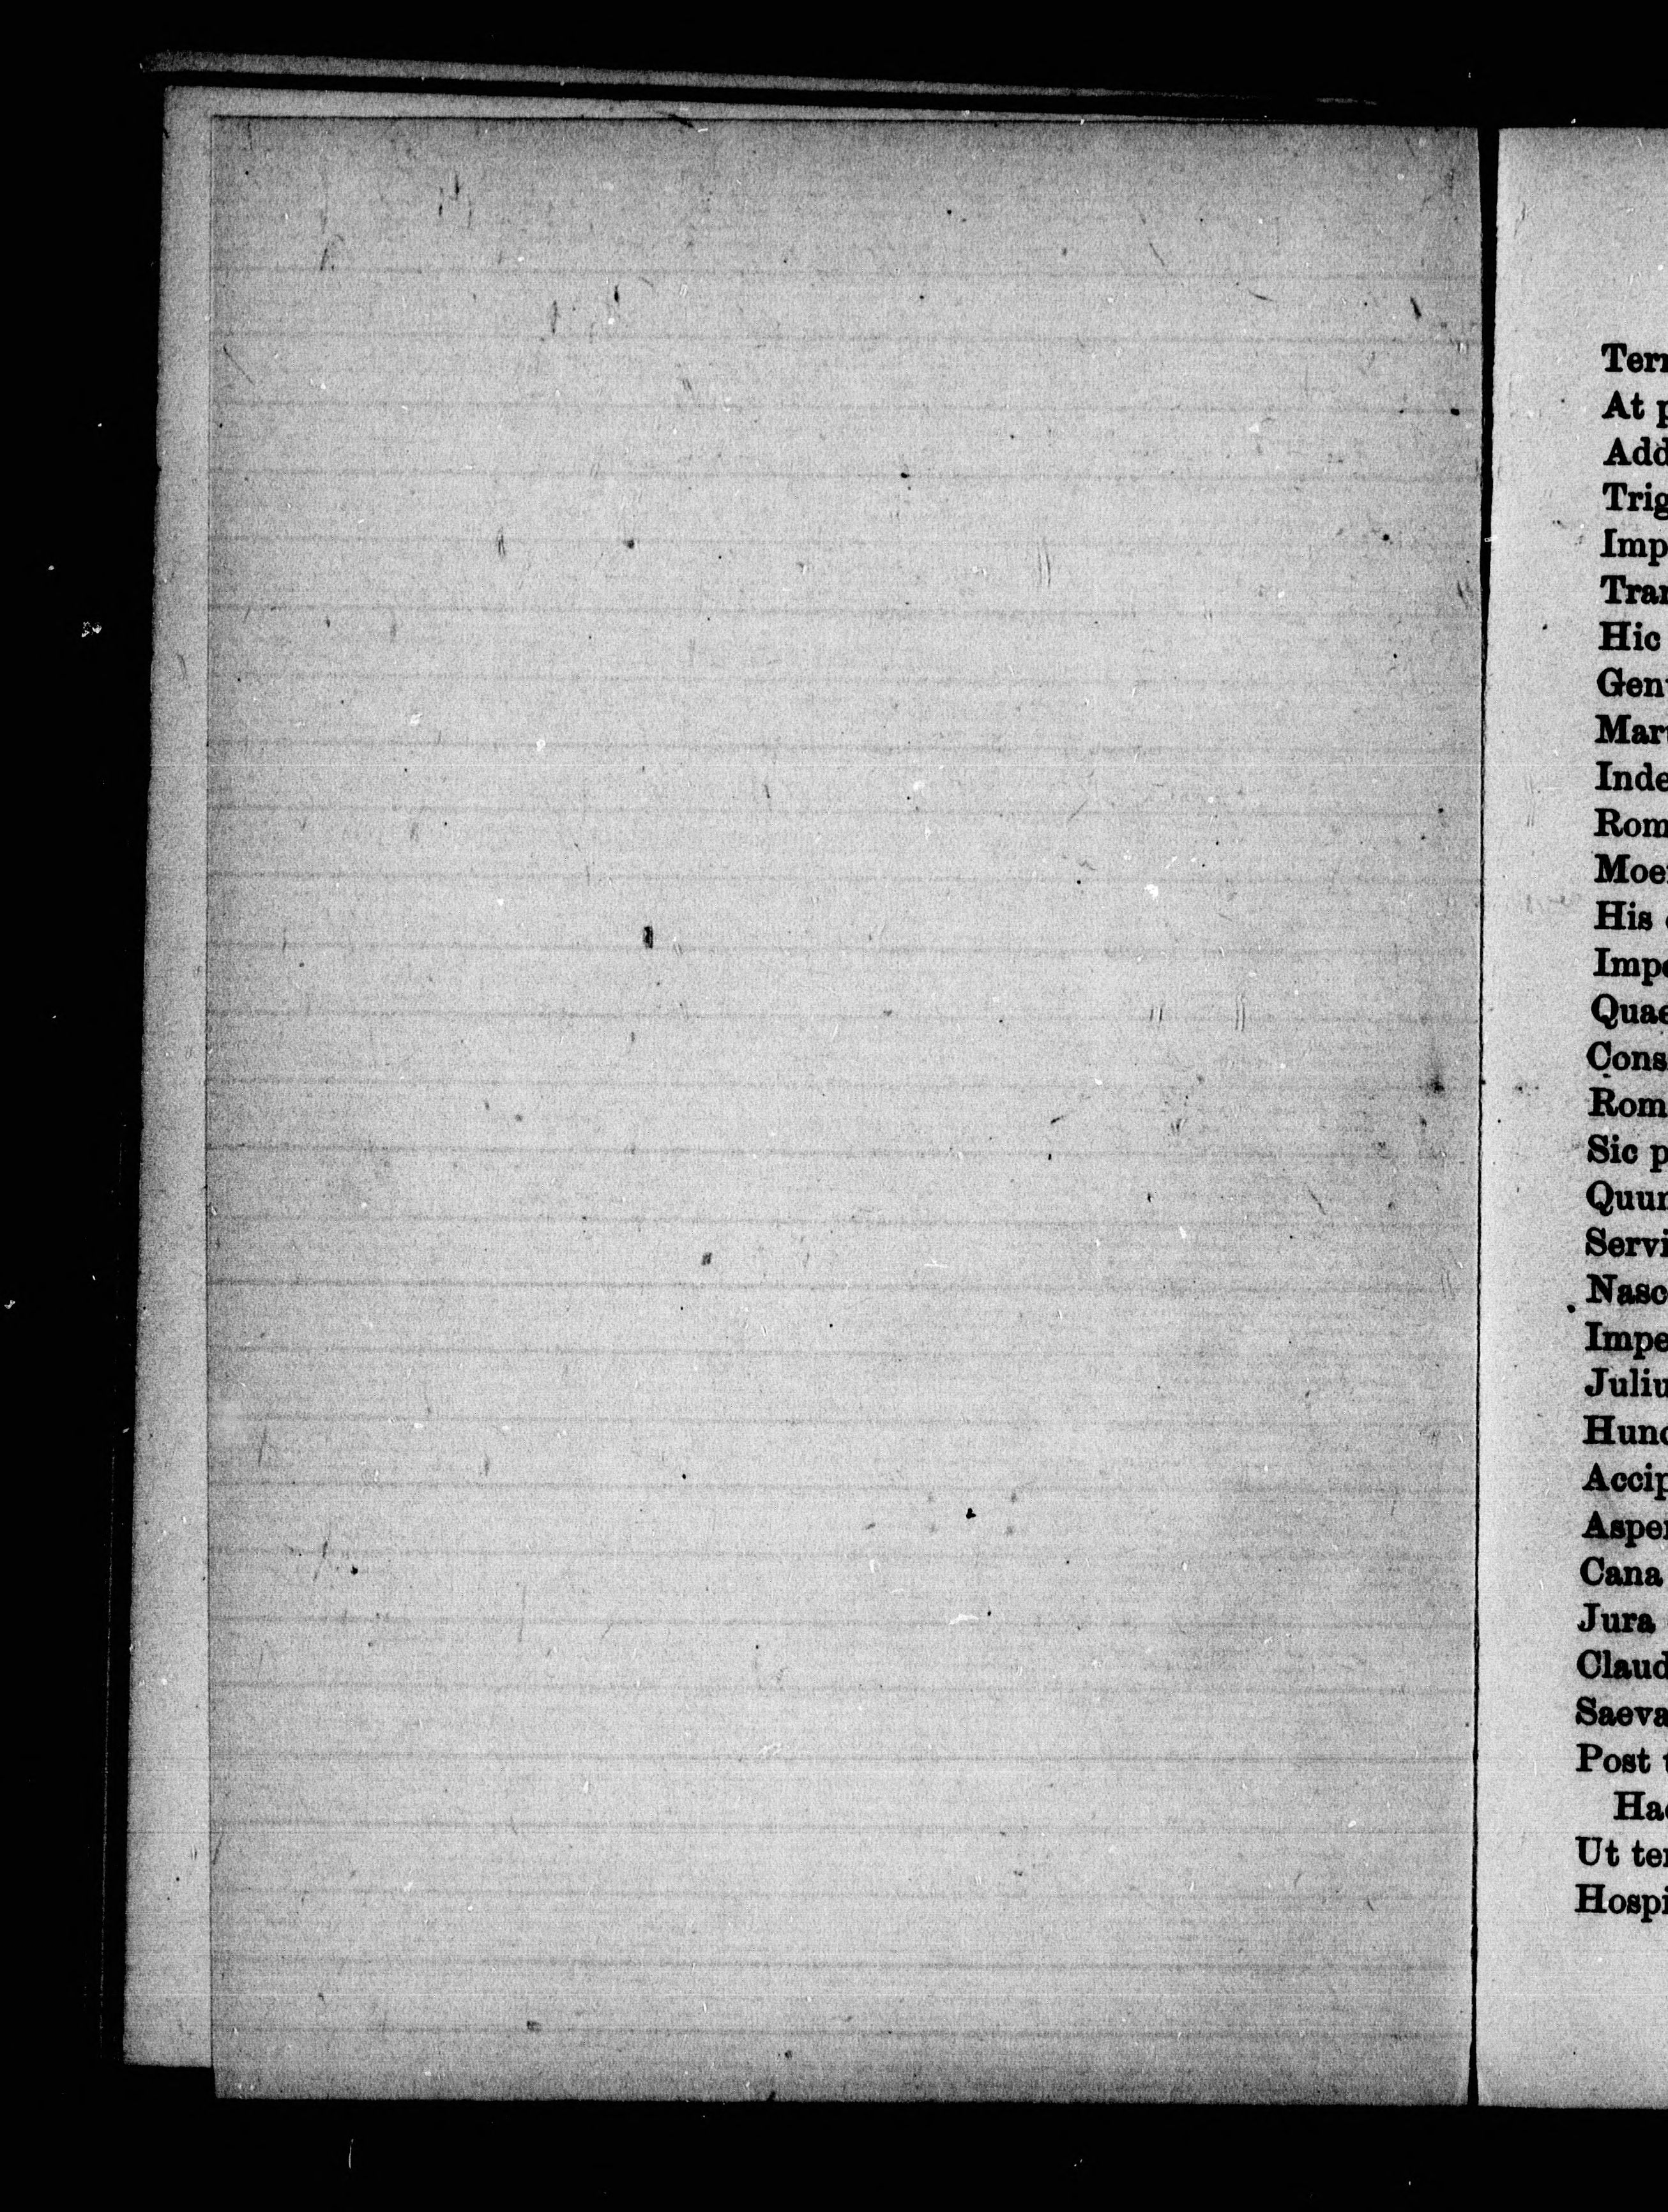 Terr
At p
Add
Trig
Imp
Tran
Hic
Gen
Mar
Inde
Rom
Moe
His
Impe
Quae
Cons
Rom
Sic p
Quu
Servi
Nasc
Impe
Juliu
Hunc
Accip
Asper
Cana
Jura
Claud
Saeva
Post t
Hae
Ut ter
Hospi